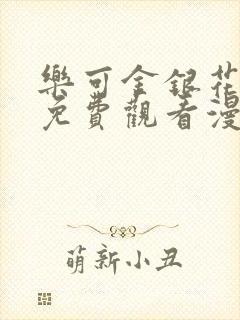 樂可金銀花
免費觀看漫
萌新小丑